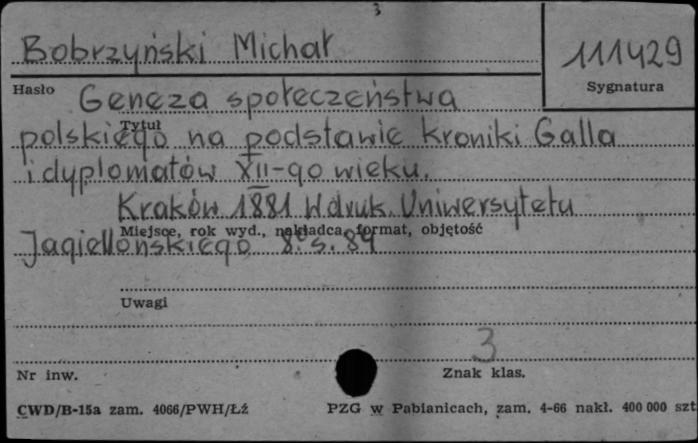 3
Bobrzyński Michał
111429
Hasło
Sygnatura
Geneza społeczeństwa
Tytuł
polskiego na podstawie kroniki Galla
i dyplomatów XII-go wieku.
Kraków 1881 W druk. Uniwersytetu
Miejsce, rok wyd., nakładca, format, objętość
Jagiellońskiego 8º s. 84
Uwagi
3
Nr inw.
Znak klas.
CWD/B-15a zam. 4066/PWH/Łź
PZG w Pabianicach, zam. 4-66 nakł. 400 000 szt